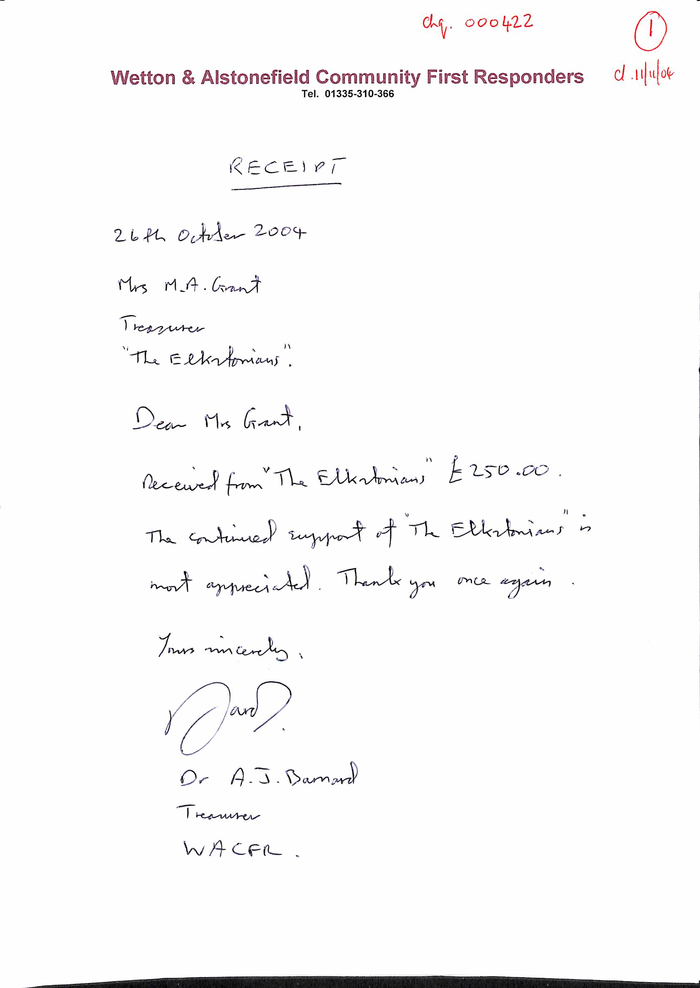 chq. 000422
1
cl. 11/11/04
Wetton & Alstonefield Community First Responders
Tel. 01335-310-366
RECEIPT
26th October 2004
Mrs M.A. Grant
Treasurer
"The Elkstonians".
Dear Mrs Grant,
Received from "The Elkstonians" £250.00.
The continued support of "The Elkstonians" is
most appreciated. Thank you once again.
Yours sincerely,
Dr A.J. Barnard
Treasurer
WACFR.